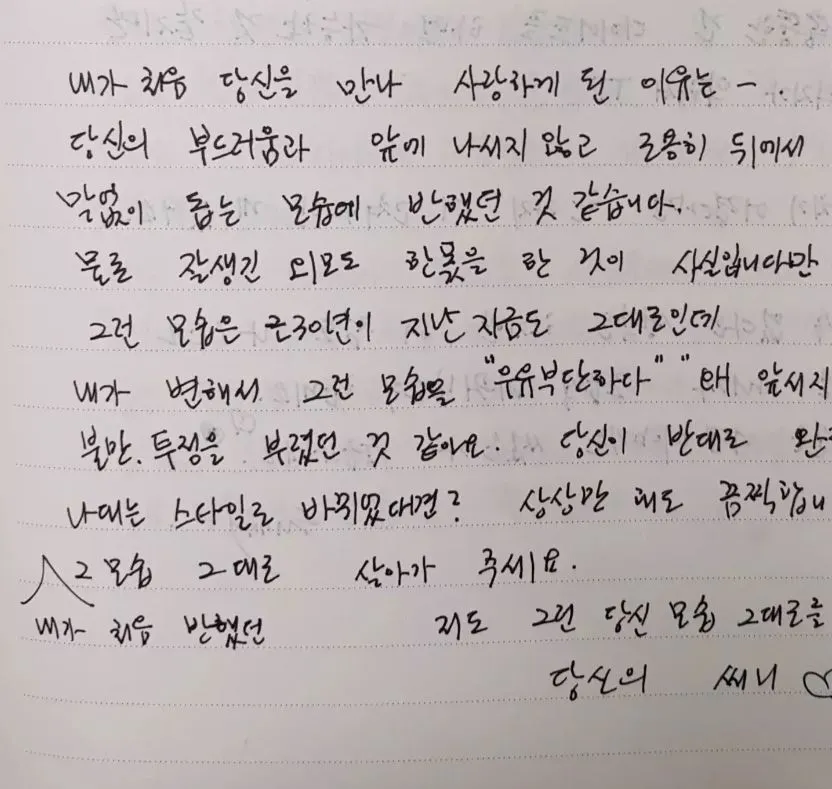 내가 처음 당신을 만나 사랑하게 된 이유는 -.
당신의 부드러움과 앞에 나서지 않고 조용히 뒤에서
말없이 돕는 모습에 반했던 것 같습니다.
물론 잘생긴 외모도 한몫을 한 것이 사실입니다만
그런 모습은 근30년이 지난 지금도 그대로인데
내가 변해서 그런 모습을 "우유부단하다" "왜 앞서지
불만, 투정을 부렸던 것 같아요. 당신이 반대로
나대는 스타일로 바뀌었다면? 상상만 해도 끔찍합니
그 모습 그대로 살아가 주세요.
내가 처음 반했던 저도 그런 당신 모습 그대로를
당신의 써니